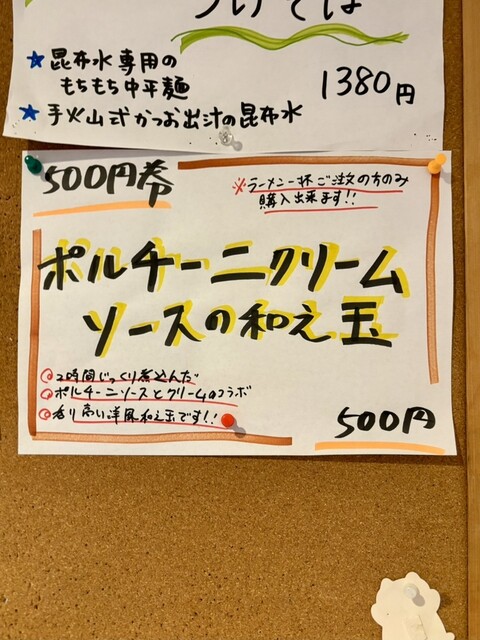 つけそば
★昆布水専用の
もちもち中平麺
1380円
★手火山式かつお出汁の昆布水
500円券
※ラーメン一杯ご注文の方のみ
購入出来ます!!
ポルチーニクリーム
ソースの和え玉
◎2時間じっくり煮込んだ
◎ポルチーニソースとクリームのコラボ
◎香り高い洋風和え玉です!!
500円